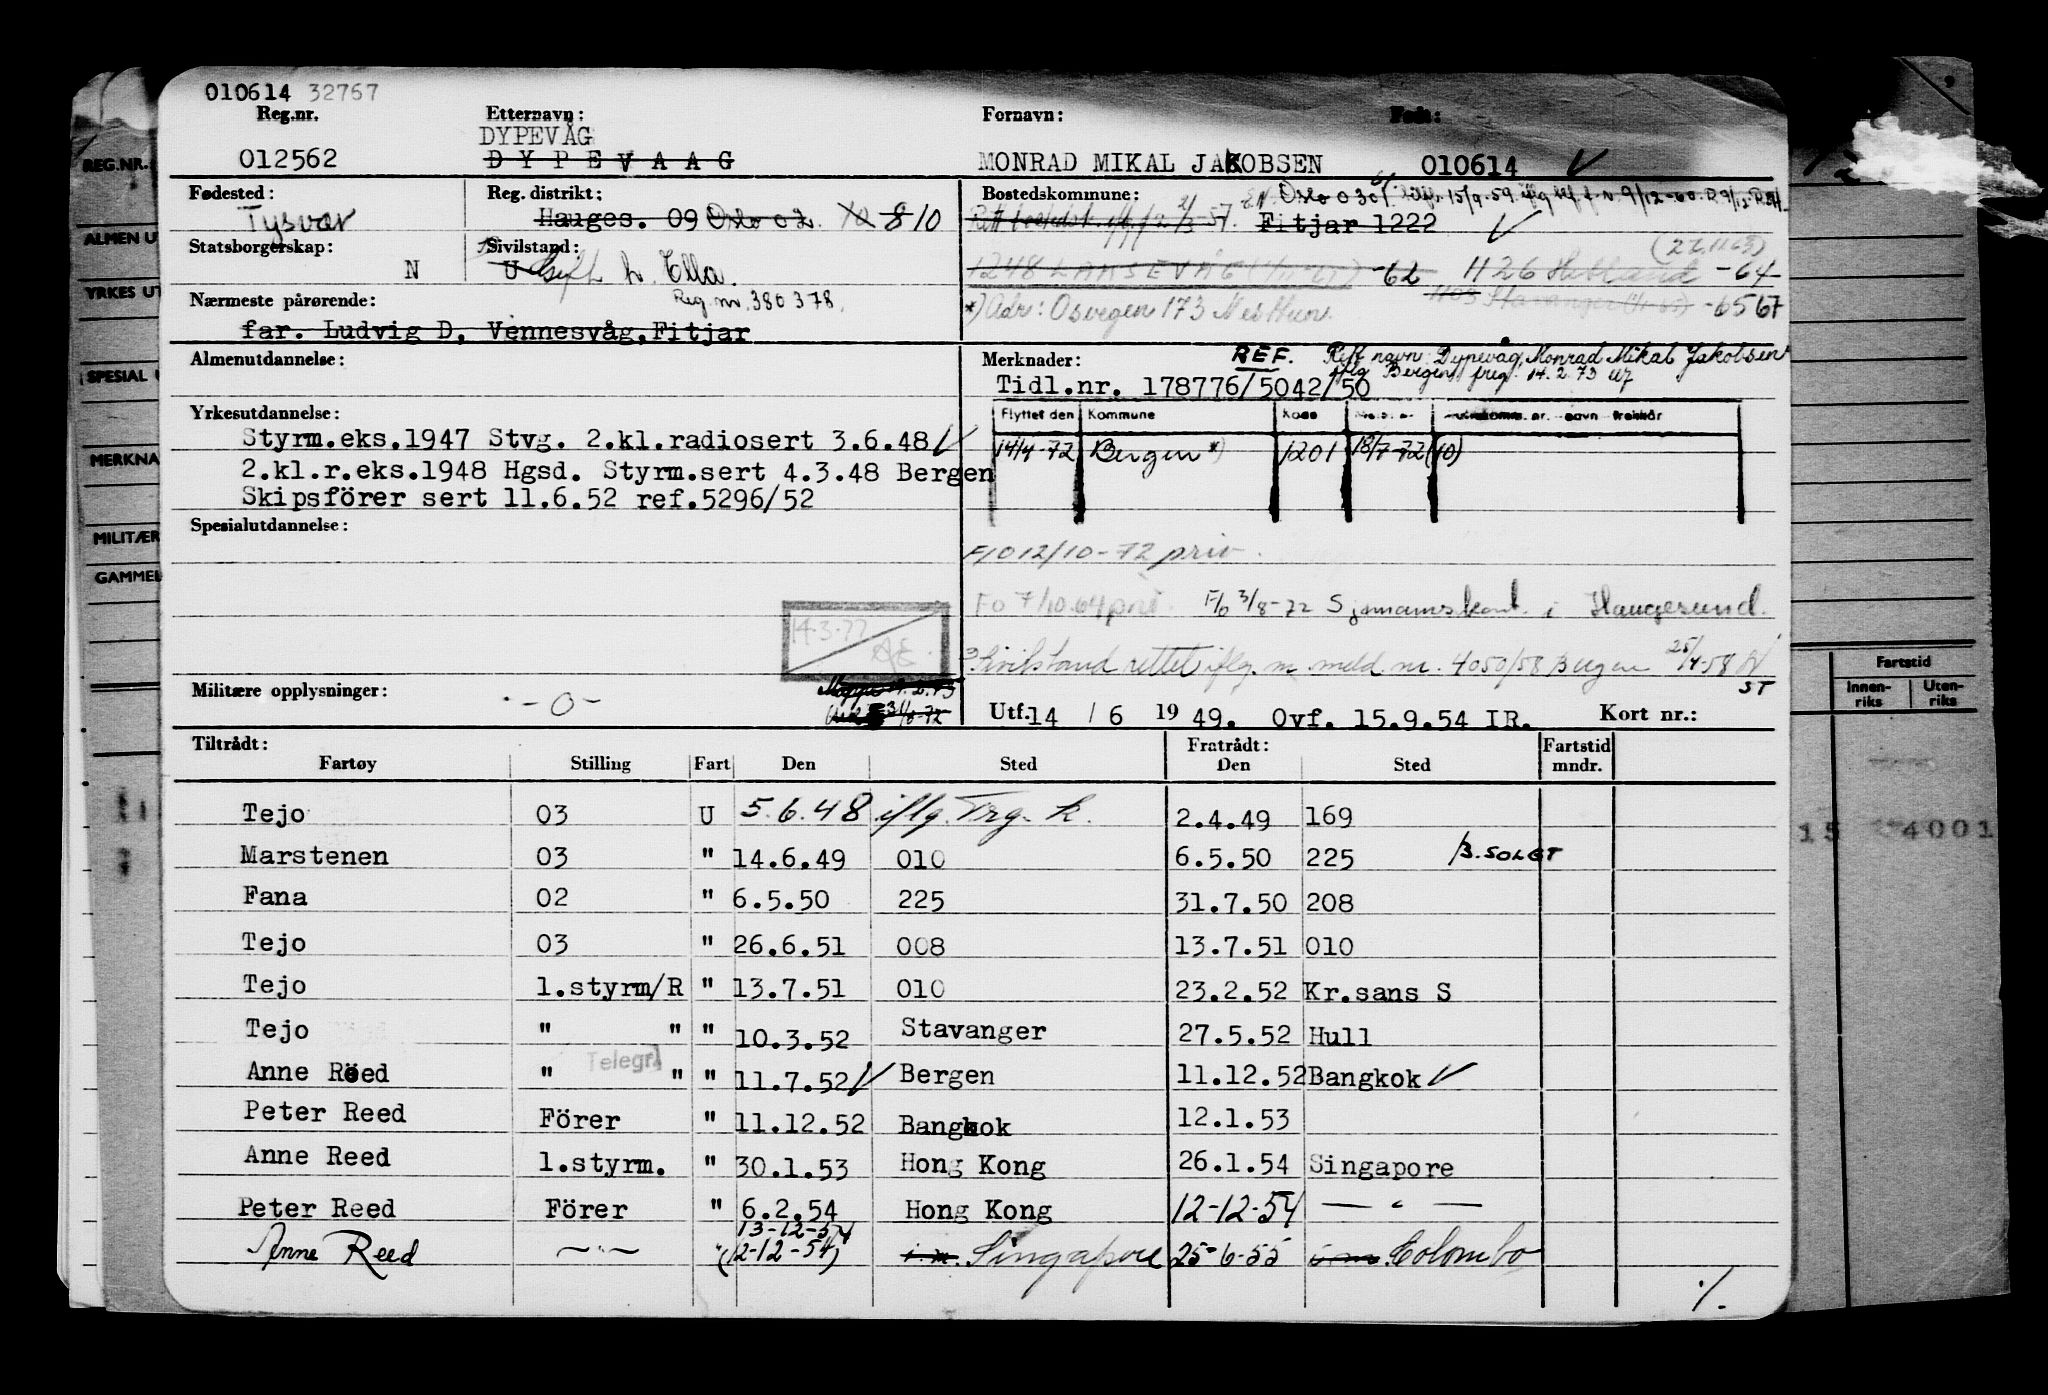 010614 32767
Reg.nr. Etternavn: Fornavn: Født:
DYPEVÅG
012562 DYPEVAAG MONRAD MIKAL JAKOBSEN 010614
Fødested: Reg. distrikt: Bostedskommune: Oslo 0301
Tysvær Hauges. 09 Oslo 02. 10 810 Fitjar 1222
Statsborgerskap: Sivilstand: (22.11.63)
N U Gift m. Ella. 1248 LAKSEVÅG -62 1126 Hetland -64
Nærmeste pårørende: Reg. nr. 380378. 1103 Stavanger -65 67
far. Ludvig D, Vennesvåg, Fitjar *) Adr: Osvegen 173 Nesttun.
Almenutdannelse: Merknader: REF. Rett navn: Dypevåg, Monrad Mikal Jakobsen
iflg Bergen freg. 14.2.73
Tidl.nr. 178776/5042/50
Yrkesutdannelse: Flyttet den Kommune Kode
Styrm.eks.1947 Stvg. 2.kl.radiosert 3.6.48 14/4-72 Bergen *) 1201 18/7-72 (10)
2.kl.r.eks.1948 Hgsd. Styrm.sert 4.3.48 Bergen
Skipsförer sert 11.6.52 ref.5296/52
Spesialutdannelse:
F/O 12/10-72 priv.
Fo 7/10.64 priv. F/o 3/8-72 Sjømannskont. i Haugesund.
14-3-77
Sivilstand rettet iflg. m meld nr. 4050/58 Bergen 25/4-58
ST
Militære opplysninger: -0- Utf. 14 / 6 19 49. Ovf. 15.9.54 IR. Kort nr.:
Tiltrådt: Fratrådt: Fartstid
Fartøy Stilling Fart Den Sted Den Sted mndr.
Tejo 03 U 5.6.48 iflg. Trg. k. 2.4.49 169
Marstenen 03 " 14.6.49 010 6.5.50 225 B.SOLGT
Fana 02 " 6.5.50 225 31.7.50 208
Tejo 03 " 26.6.51 008 13.7.51 010
Tejo 1.styrm/R " 13.7.51 010 23.2.52 Kr.sans S
Tejo " " " 10.3.52 Stavanger 27.5.52 Hull
Anne Reed " Telegr. " " 11.7.52 Bergen 11.12.52 Bangkok
Peter Reed Förer " 11.12.52 Bangkok 12.1.53
Anne Reed 1.styrm. " 30.1.53 Hong Kong 26.1.54 Singapore
Peter Reed Förer " 6.2.54 Hong Kong 12-12-54 — " —
13-12-54
Anne Reed — " — " (12-12-54) i.m. Singapore 25-6-55 i.m. Colombo
./.
REG.NR.
ALMEN U
YRKES UT
SPESIAL U
MERKNA
MILITÆR
GAMMEL
Fartstid
Innen-
riks
Uten-
riks
15 4001